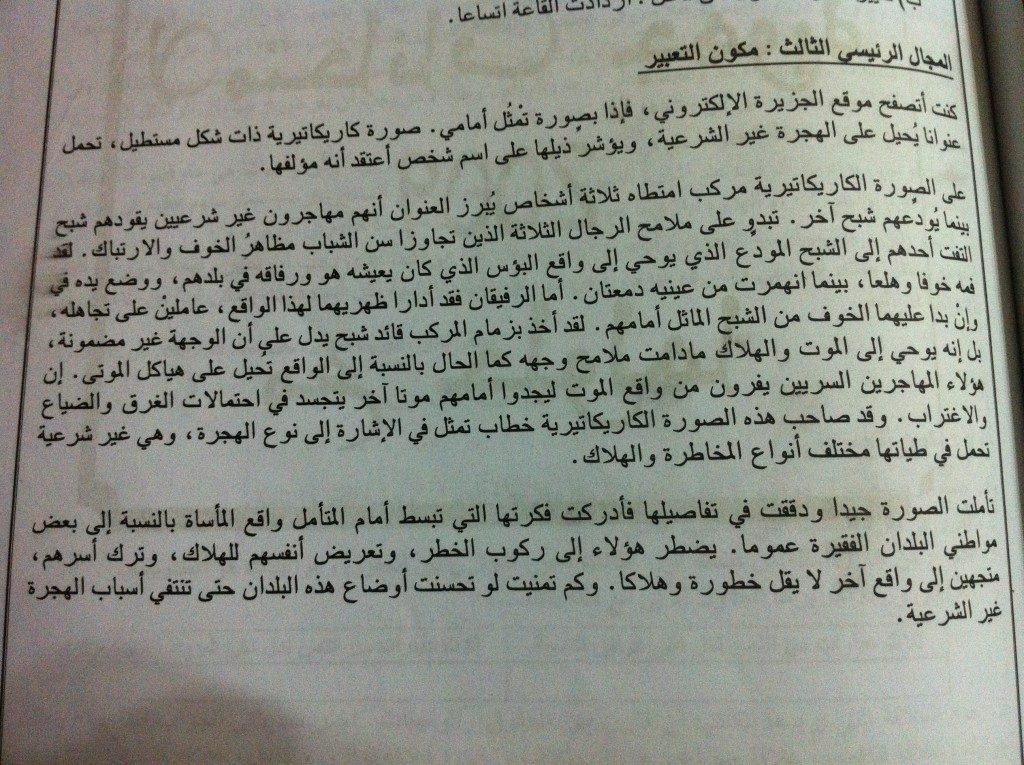 ازدادت القاعة اتساعا.
المجال الرئيسي الثالث : مكون التعبير
كنت أتصفح موقع الجزيرة الإلكتروني، فإذا بصورة تمْثُل أمامي. صورة كاريكاتيرية ذات شكل مستطيل، تحمل
عنوانا يُحيل على الهجرة غير الشرعية، ويؤشر ذيلها على اسم شخص أعتقد أنه مؤلفها.
على الصورة الكاريكاتيرية مركب امتطاه ثلاثة أشخاص يُبرز العنوان أنهم مهاجرون غير شرعيين يقودهم شبح
بينما يُودّعهم شبح آخر. تبدو على ملامح الرجال الثلاثة الذين تجاوزا سن الشباب مظاهرُ الخوف والارتباك. لقد
التفت أحدهم إلى الشبح المودع الذي يوحي إلى واقع البؤس الذي كان يعيشه هو ورفاقه في بلدهم، ووضع يده في
فمه خوفا وهلعا، بينما انهمرت من عينيه دمعتان. أما الرفيقان فقد أدارا ظهريهما لهذا الواقع، عاملينْ على تجاهله،
وإنْ بدا عليهما الخوف من الشبح الماثل أمامهم. لقد أخذ بزمام المركب قائد شبح يدل على أن الوجهة غير مضمونة،
بل إنه يوحي إلى الموت والهلاك مادامت ملامح وجهه كما الحال بالنسبة إلى الواقع تُحيل على هياكل الموتى. إن
هؤلاء المهاجرين السريين يفرون من واقع الموت ليجدوا أمامهم موتا آخر يتجسد في احتمالات الغرق والضياع
والاغتراب. وقد صاحب هذه الصورة الكاريكاتيرية خطاب تمثل في الإشارة إلى نوع الهجرة، وهي غير شرعية
تحمل في طياتها مختلف أنواع المخاطرة والهلاك.
تأملت الصورة جيدا ودققت في تفاصيلها فأدركت فكرتها التي تبسط أمام المتأمل واقع المأساة بالنسبة إلى بعض
مواطني البلدان الفقيرة عموما. يضطر هؤلاء إلى ركوب الخطر، وتعريض أنفسهم للهلاك، وترك أسرهم،
متجهين إلى واقع آخر لا يقل خطورة وهلاكا. وكم تمنيت لو تحسنت أوضاع هذه البلدان حتى تنتفي أسباب الهجرة
غير الشرعية.